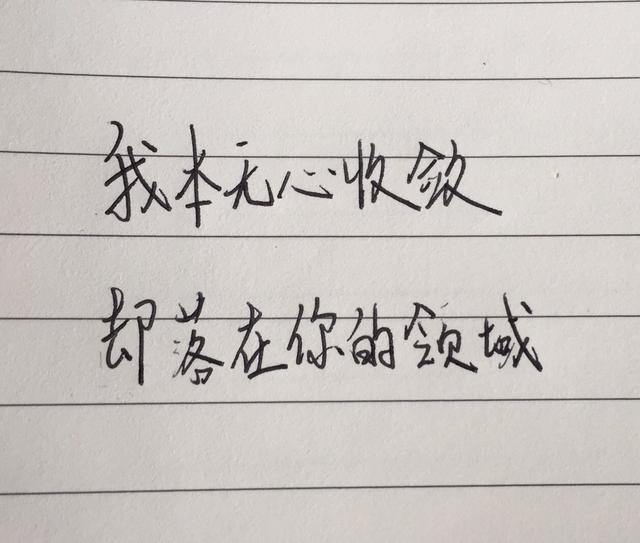 我本无心收敛
却落在你的领域